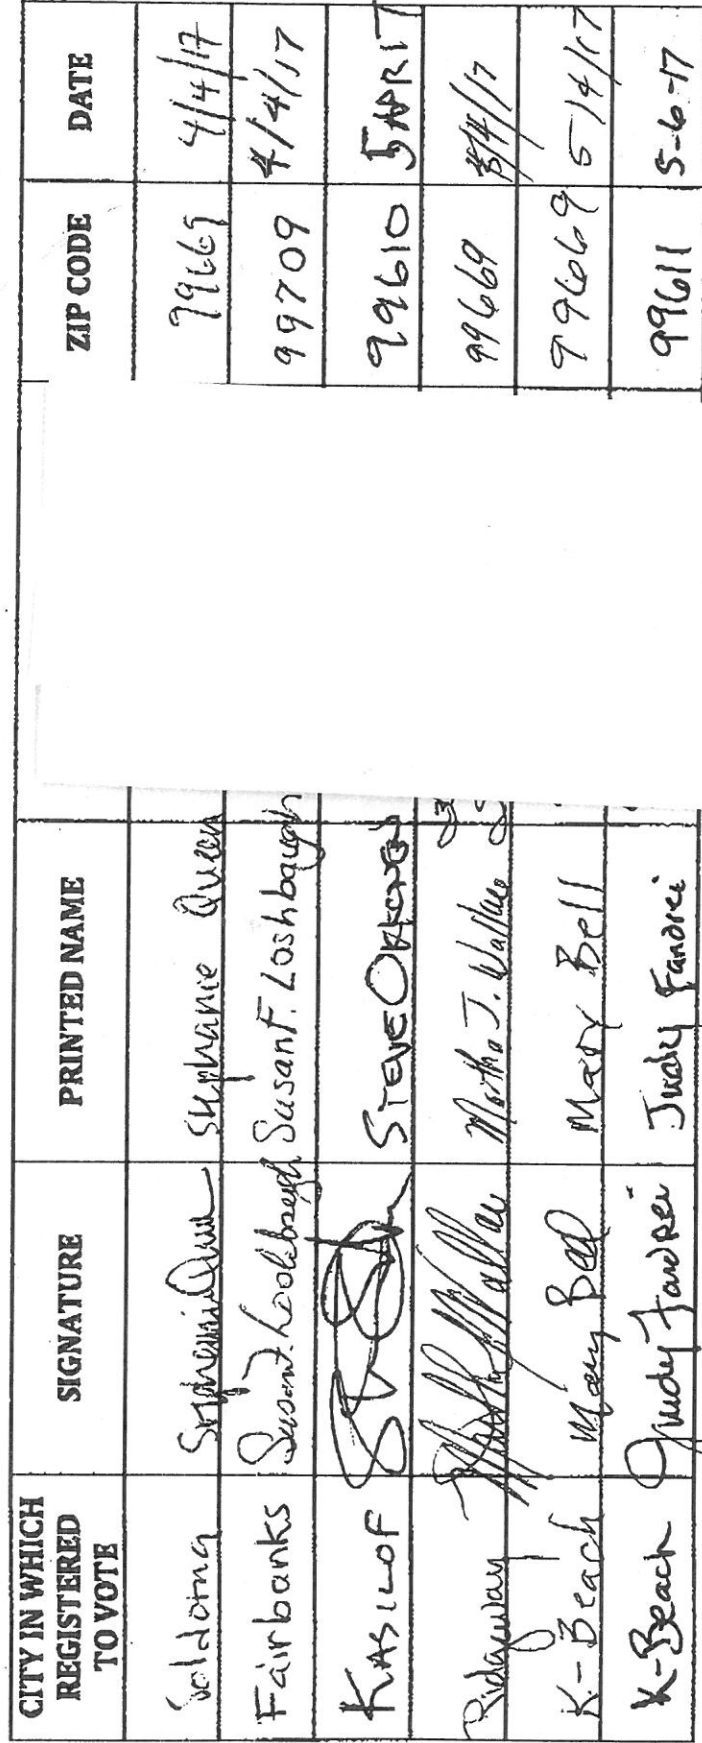 CITY IN WHICH REGISTERED TO VOTE SIGNATURE PRINTED NAME ZIP CODE DATE
Soldotna Stephanie Queen Stephanie Queen 99669 4/4/17
Fairbanks Susan F. Loshbaugh Susan F. Loshbaugh 99709 4/4/17
KASILOF STEVE 99610 5APR17
Ridgeway Martha J. Wallace 99669 /4/17
K-Beach Mary Bell Mary Bell 99669 5/4/17
K-Beach Judy Fandrei Judy Fandrei 99611 5-6-17